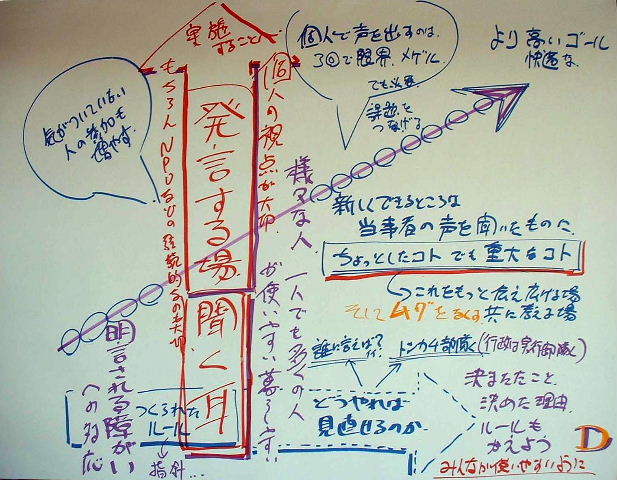 実施
すること
個人で声を出すのは、
3回で限界、メゲル
でも必要
課題を
つなげる
より高いゴール
快適な
気がついていない
人の参加も
増やす。
もちろんNPOなどの
個人の視点が大切
発言する場
聞く耳
様々な人、一人でも多くの人
が使いやすい暮らしやすい
新しくできるところな
当事者の声を聞いたものに
ちょっとしたコトでも重大なコト
これをもっと伝え広げる場
そしてムダをなくす共に考える場
誰に言えば?
トンカチ部隊
(行政は実行部隊)
どうやれば
見直せるのか
決まったこと
決めた理由
ルールも
かえよう
みんなが使いやすいように
D
つくられた
ルール
指針...
明言される障がい
への対応